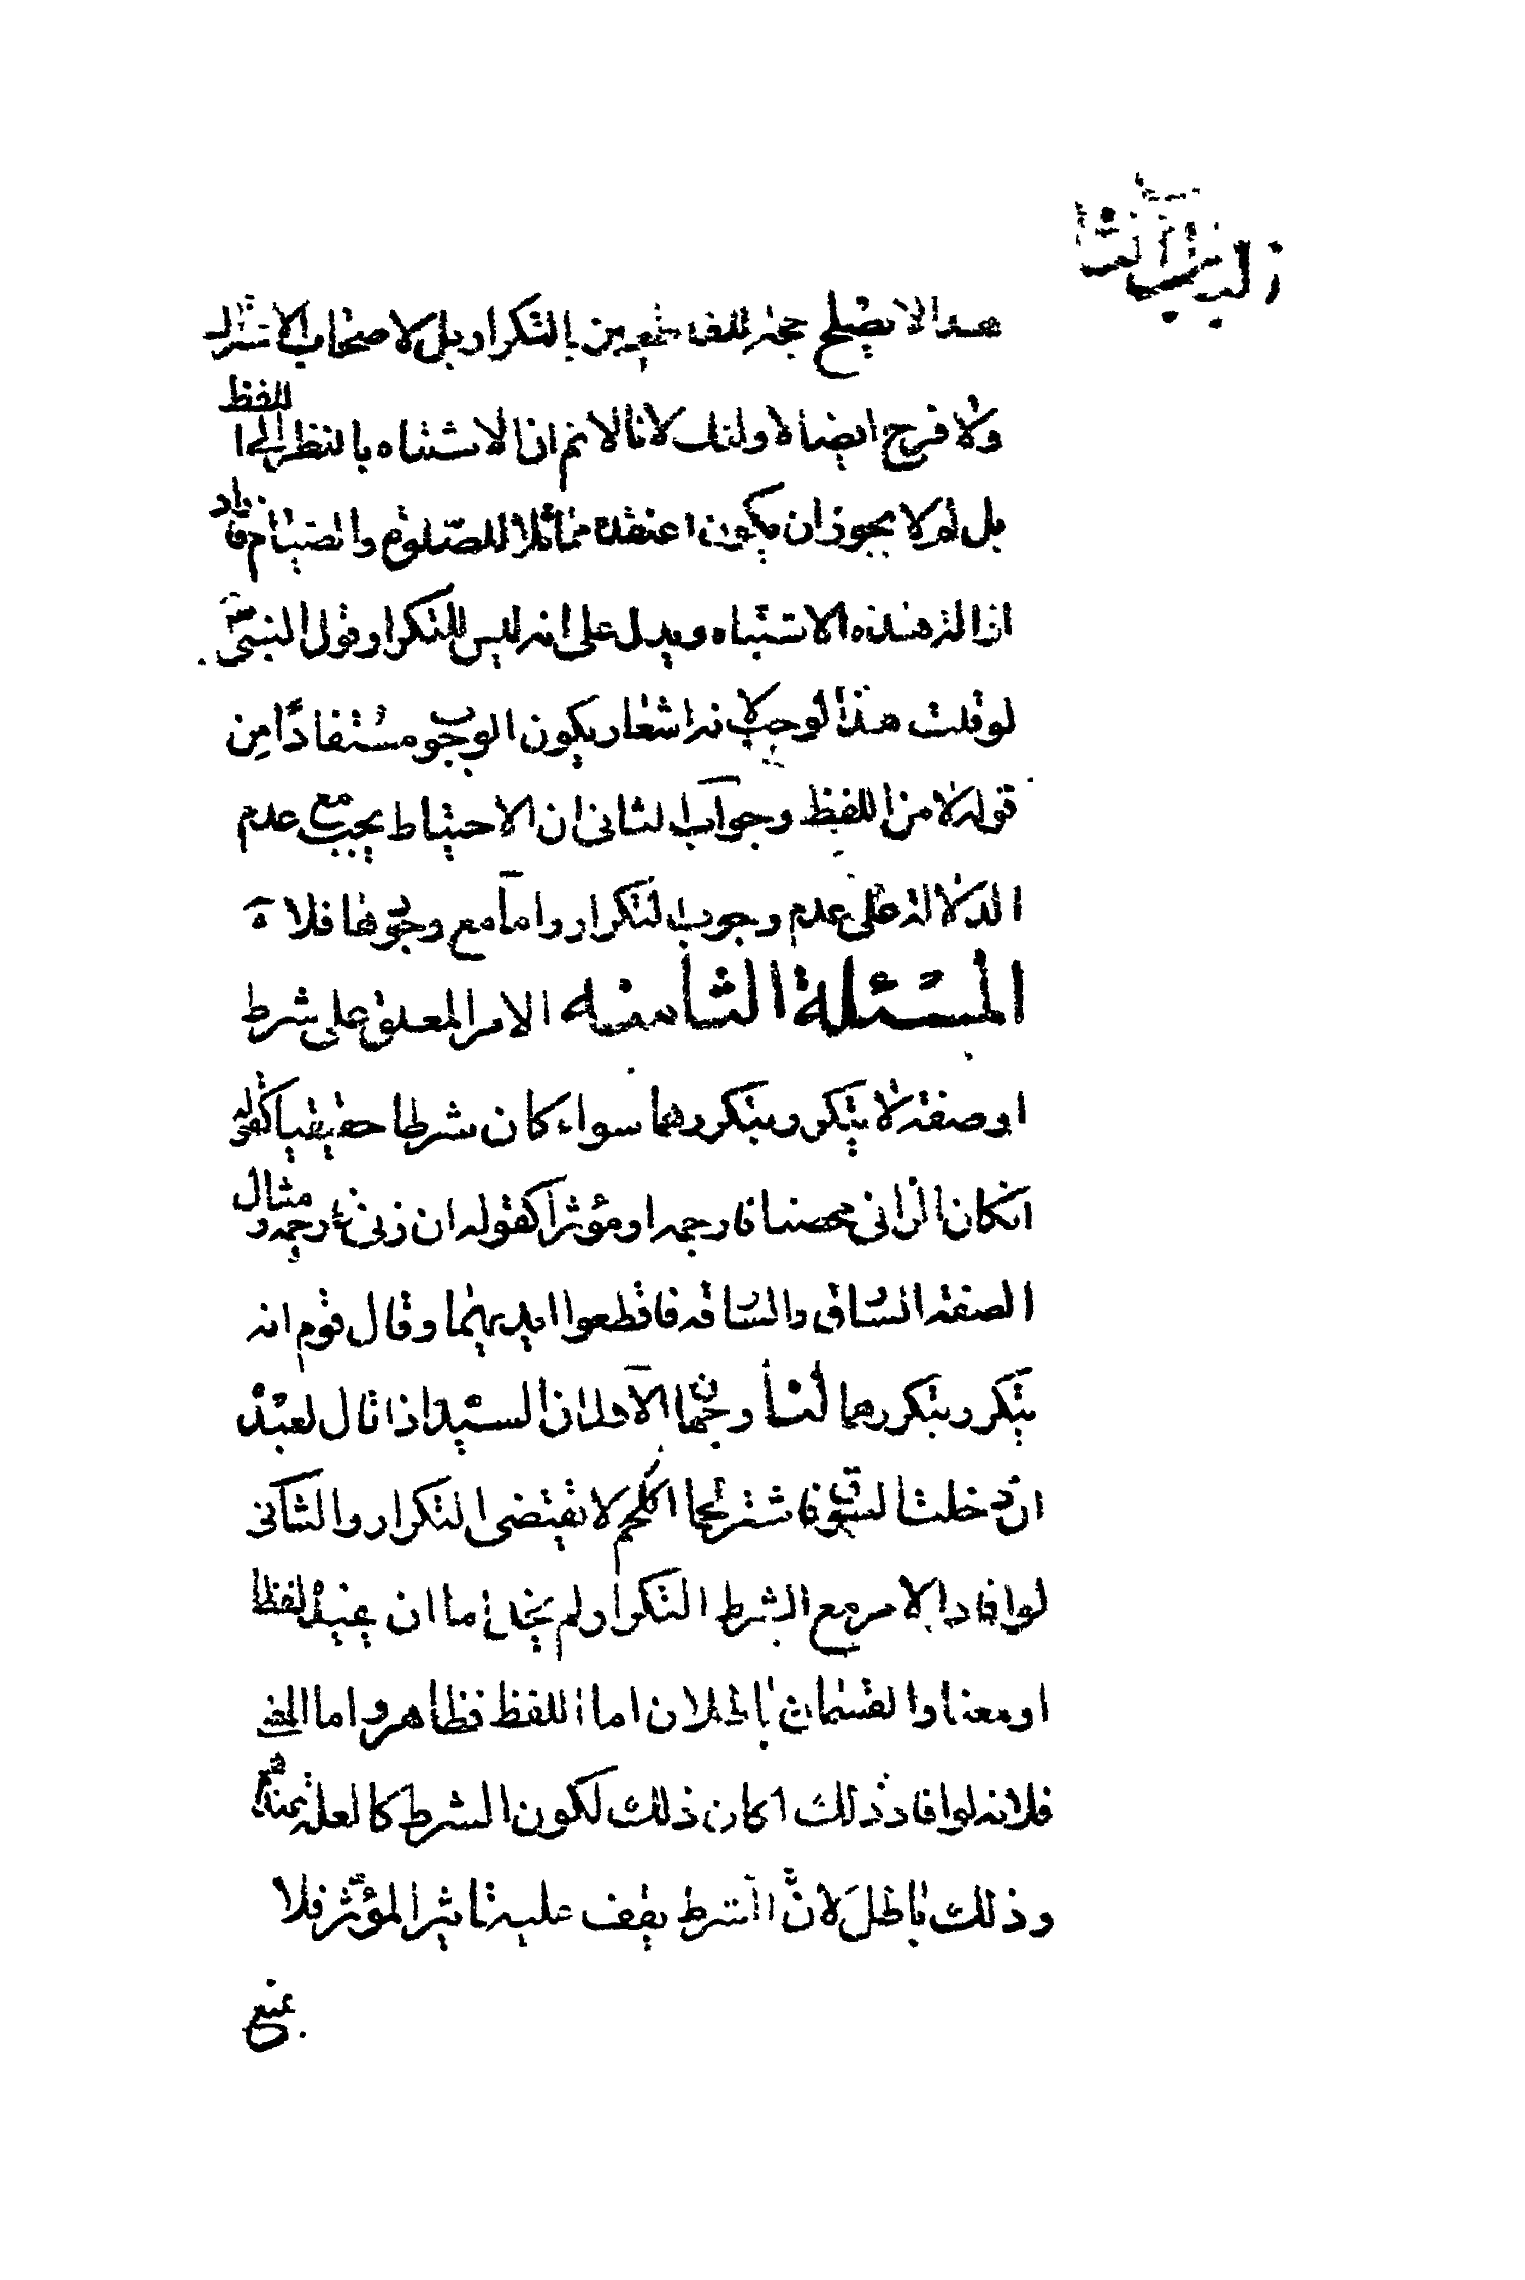 هذا لا يصلح حجة للقائلين بالتكرار بل لاصحاب الاشتراك
ولا فرج ايضا لا ولئك لانا لا نم ان الاشتباه بالنظر الى اللفظ
بل لم لا يجوز ان يكون اعتقده مماثلا للصلوة والصيام فاراد
ازالة هذه الاشتباه ويدل على انه ليس للتكرار قول النبي
لو قلت هذا لوجب لانه اشعار يكون الوجوب مستفادا من
قوله لا من اللفظ وجواب الثاني ان الاحتياط يجب مع عدم
الدلالة على عدم وجوب التكرار واما مع وجودها فلا ه
المسئلة الثامنة الامر المعلق على شرط
او صفة لا يتكرر بتكررهما سواء كان شرطا حقيقيا كقوله
ان كان الزاني محصنا فارجمه او مؤثرا كقوله ان زنى فارجمه ومثال
الصفة السارق والسارقة فاقطعوا ايديهما وقال قوم انه
يتكرر بتكررهما لنا وجهان الاول ان السيد اذا قال لعبده
ان دخلت السوق فاشتر لحما اكلحم لا يقتضى التكرار والثاني
لو افاد الامر مع الشرط التكرار ولم يخل اما ان يفيد لفظا
او معنا والقسمان باطلان اما اللفظ فظاهر واما المعنى
فلانه لو افاد ذلك لكان ذلك لكون الشرط كالعلة
وذلك باطل لان الشرط يقف عليه تاثير المؤثر فلا
يمنع